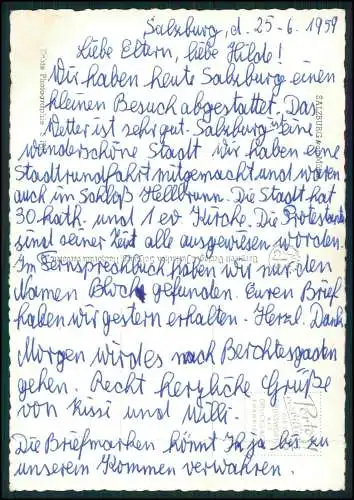 Salzburg, d. 25-6. 1959
Liebe Eltern, liebe Hilde!
Wir haben heute Salzburg einen
kleinen Besuch abgestattet. Das
Wetter ist sehr gut. Salzburg ist eine
wunderschöne Stadt wir haben eine
Stadtrundfahrt mitgemacht und waren
auch im Schloß Hellbrunn. Die Stadt hat
30 kath. und 1 ev Kirche. Die Protestanten
sind seiner Zeit alle ausgewiesen worden.
Im Fernsprechbuch haben wir nur den
Namen Block gefunden. Euren Brief
haben wir gestern erhalten. Herzl. Dank.
Morgen wird es nach Berchtesgaden
gehen. Recht herzliche Grüße
von Kissi und Willi.
Die Briefmarken könnt Ihr ja bis zu
unserem Kommen verwahren.